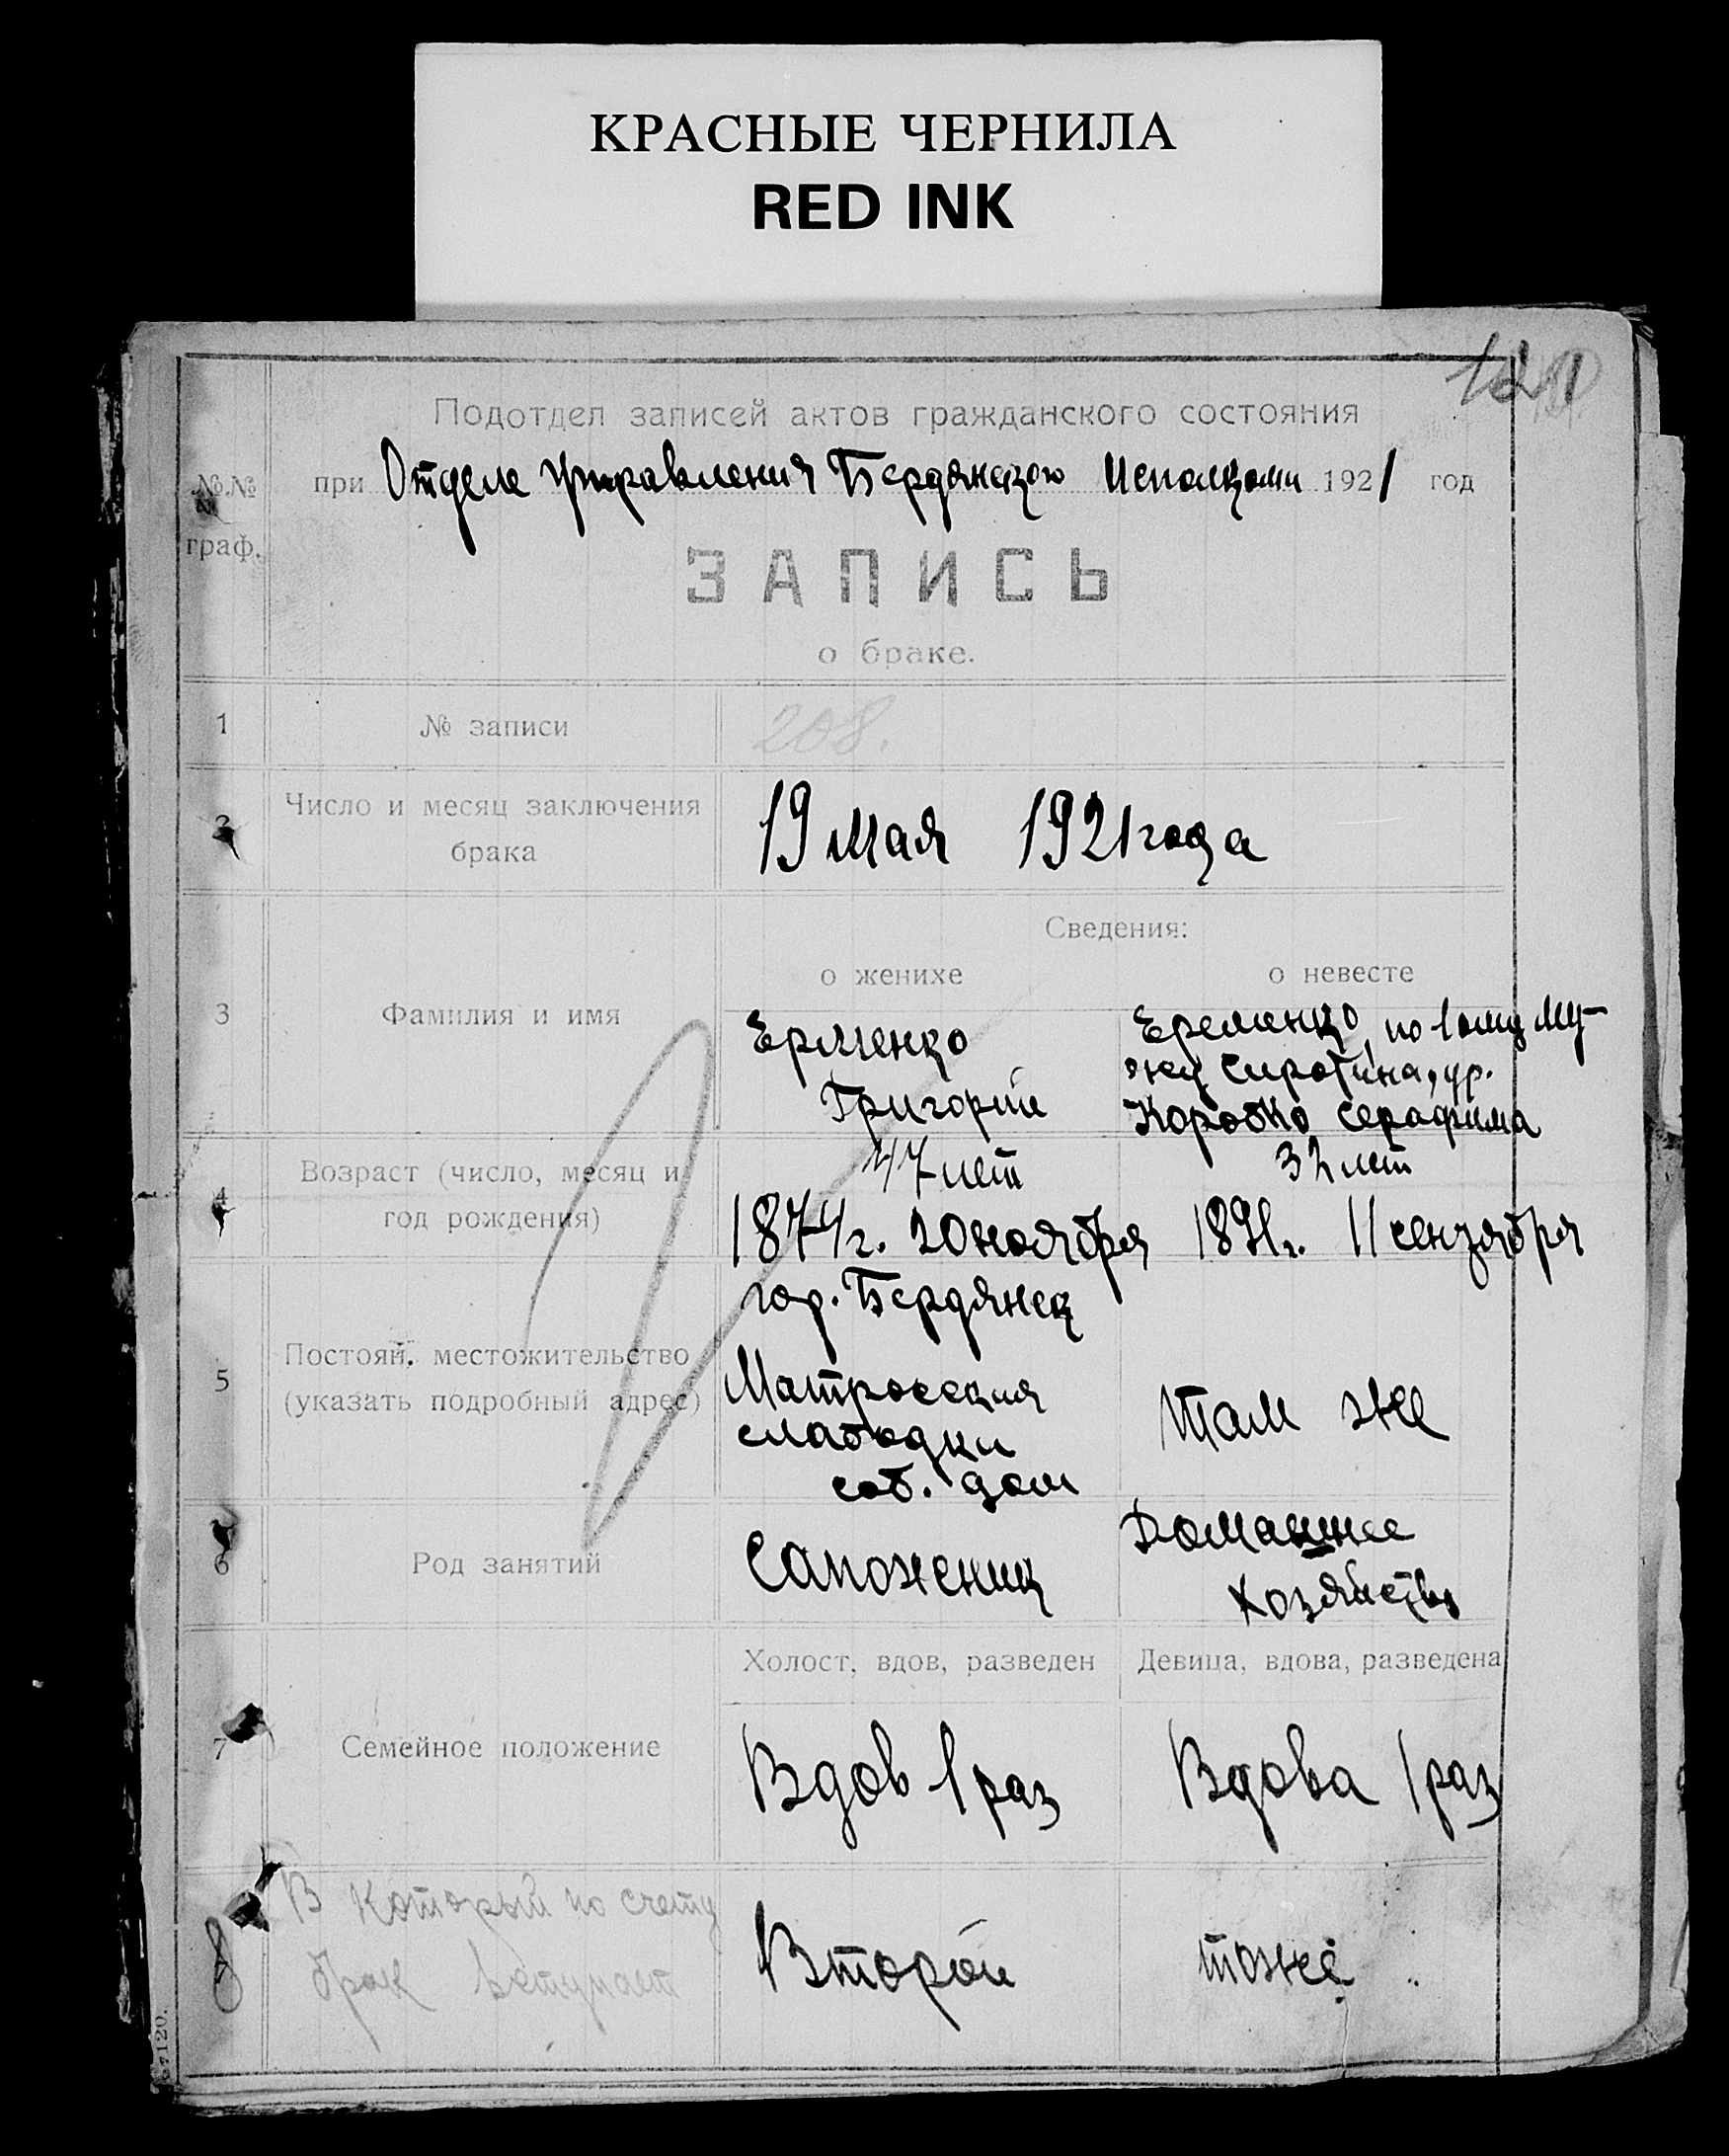 КРАСНЫЕ ЧЕРНИЛА
RED INK
Подотдел записей актов гражданского состояния
№.№ граф.
при Отделе Управления Бердянского Исполкома 1921 год
ЗАПИСЬ
о браке.
1 № записи 208.
2 Число и месяц заключения брака
19 мая 1921 года
Сведения:
о женихе о невесте
3 Фамилия и имя
Ерменко
Григорий
Еременко, по 1ому му-
жу Сиротина, ур.
Коробко Серафима
4 Возраст (число, месяц и
год рождения)
47 лет
1874 г. 20 ноября
32 лет
11 сентября
5 Постоян. местожительство
(указать подробный адрес)
гор. Бердянск
Матросская
слабодки
соб. дом
Там же
6 Род занятий
Сапожник
Домашнее
хозяйство
7 Семейное положение
Холост, вдов, разведен
Девица, вдова, разведена
Вдов 1 раз
Вдова 1 раз
8 В который по счету
брак вступает
Второй
тоже